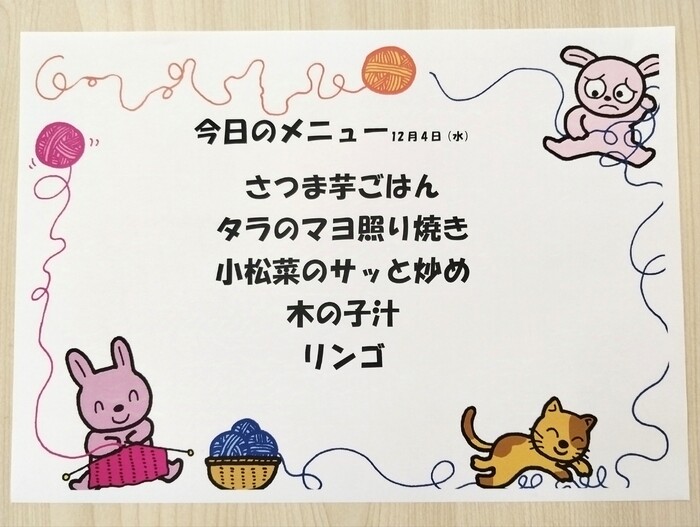 今日のメニュー 12月4日（水）
さつま芋ごはん
タラのマヨ照り焼き
小松菜のサッと炒め
木の子汁
リンゴ